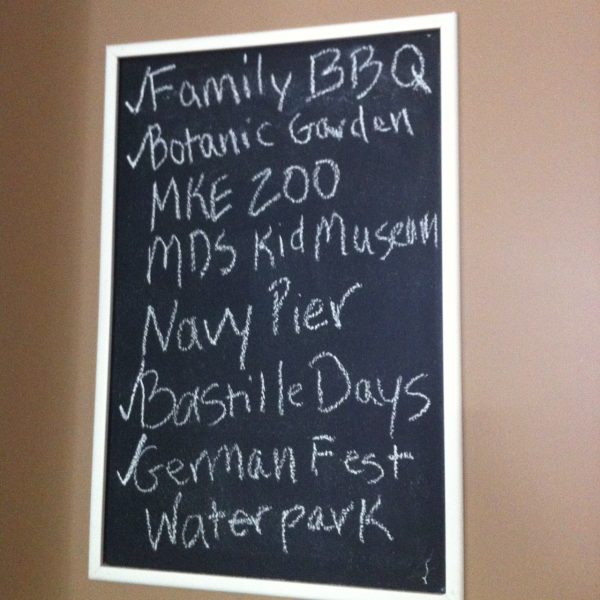 ✓Family BBQ
✓Botanic Garden
MKE ZOO
MDS Kid Museum
Navy Pier
✓Bastille Days
✓German Fest
Waterpark